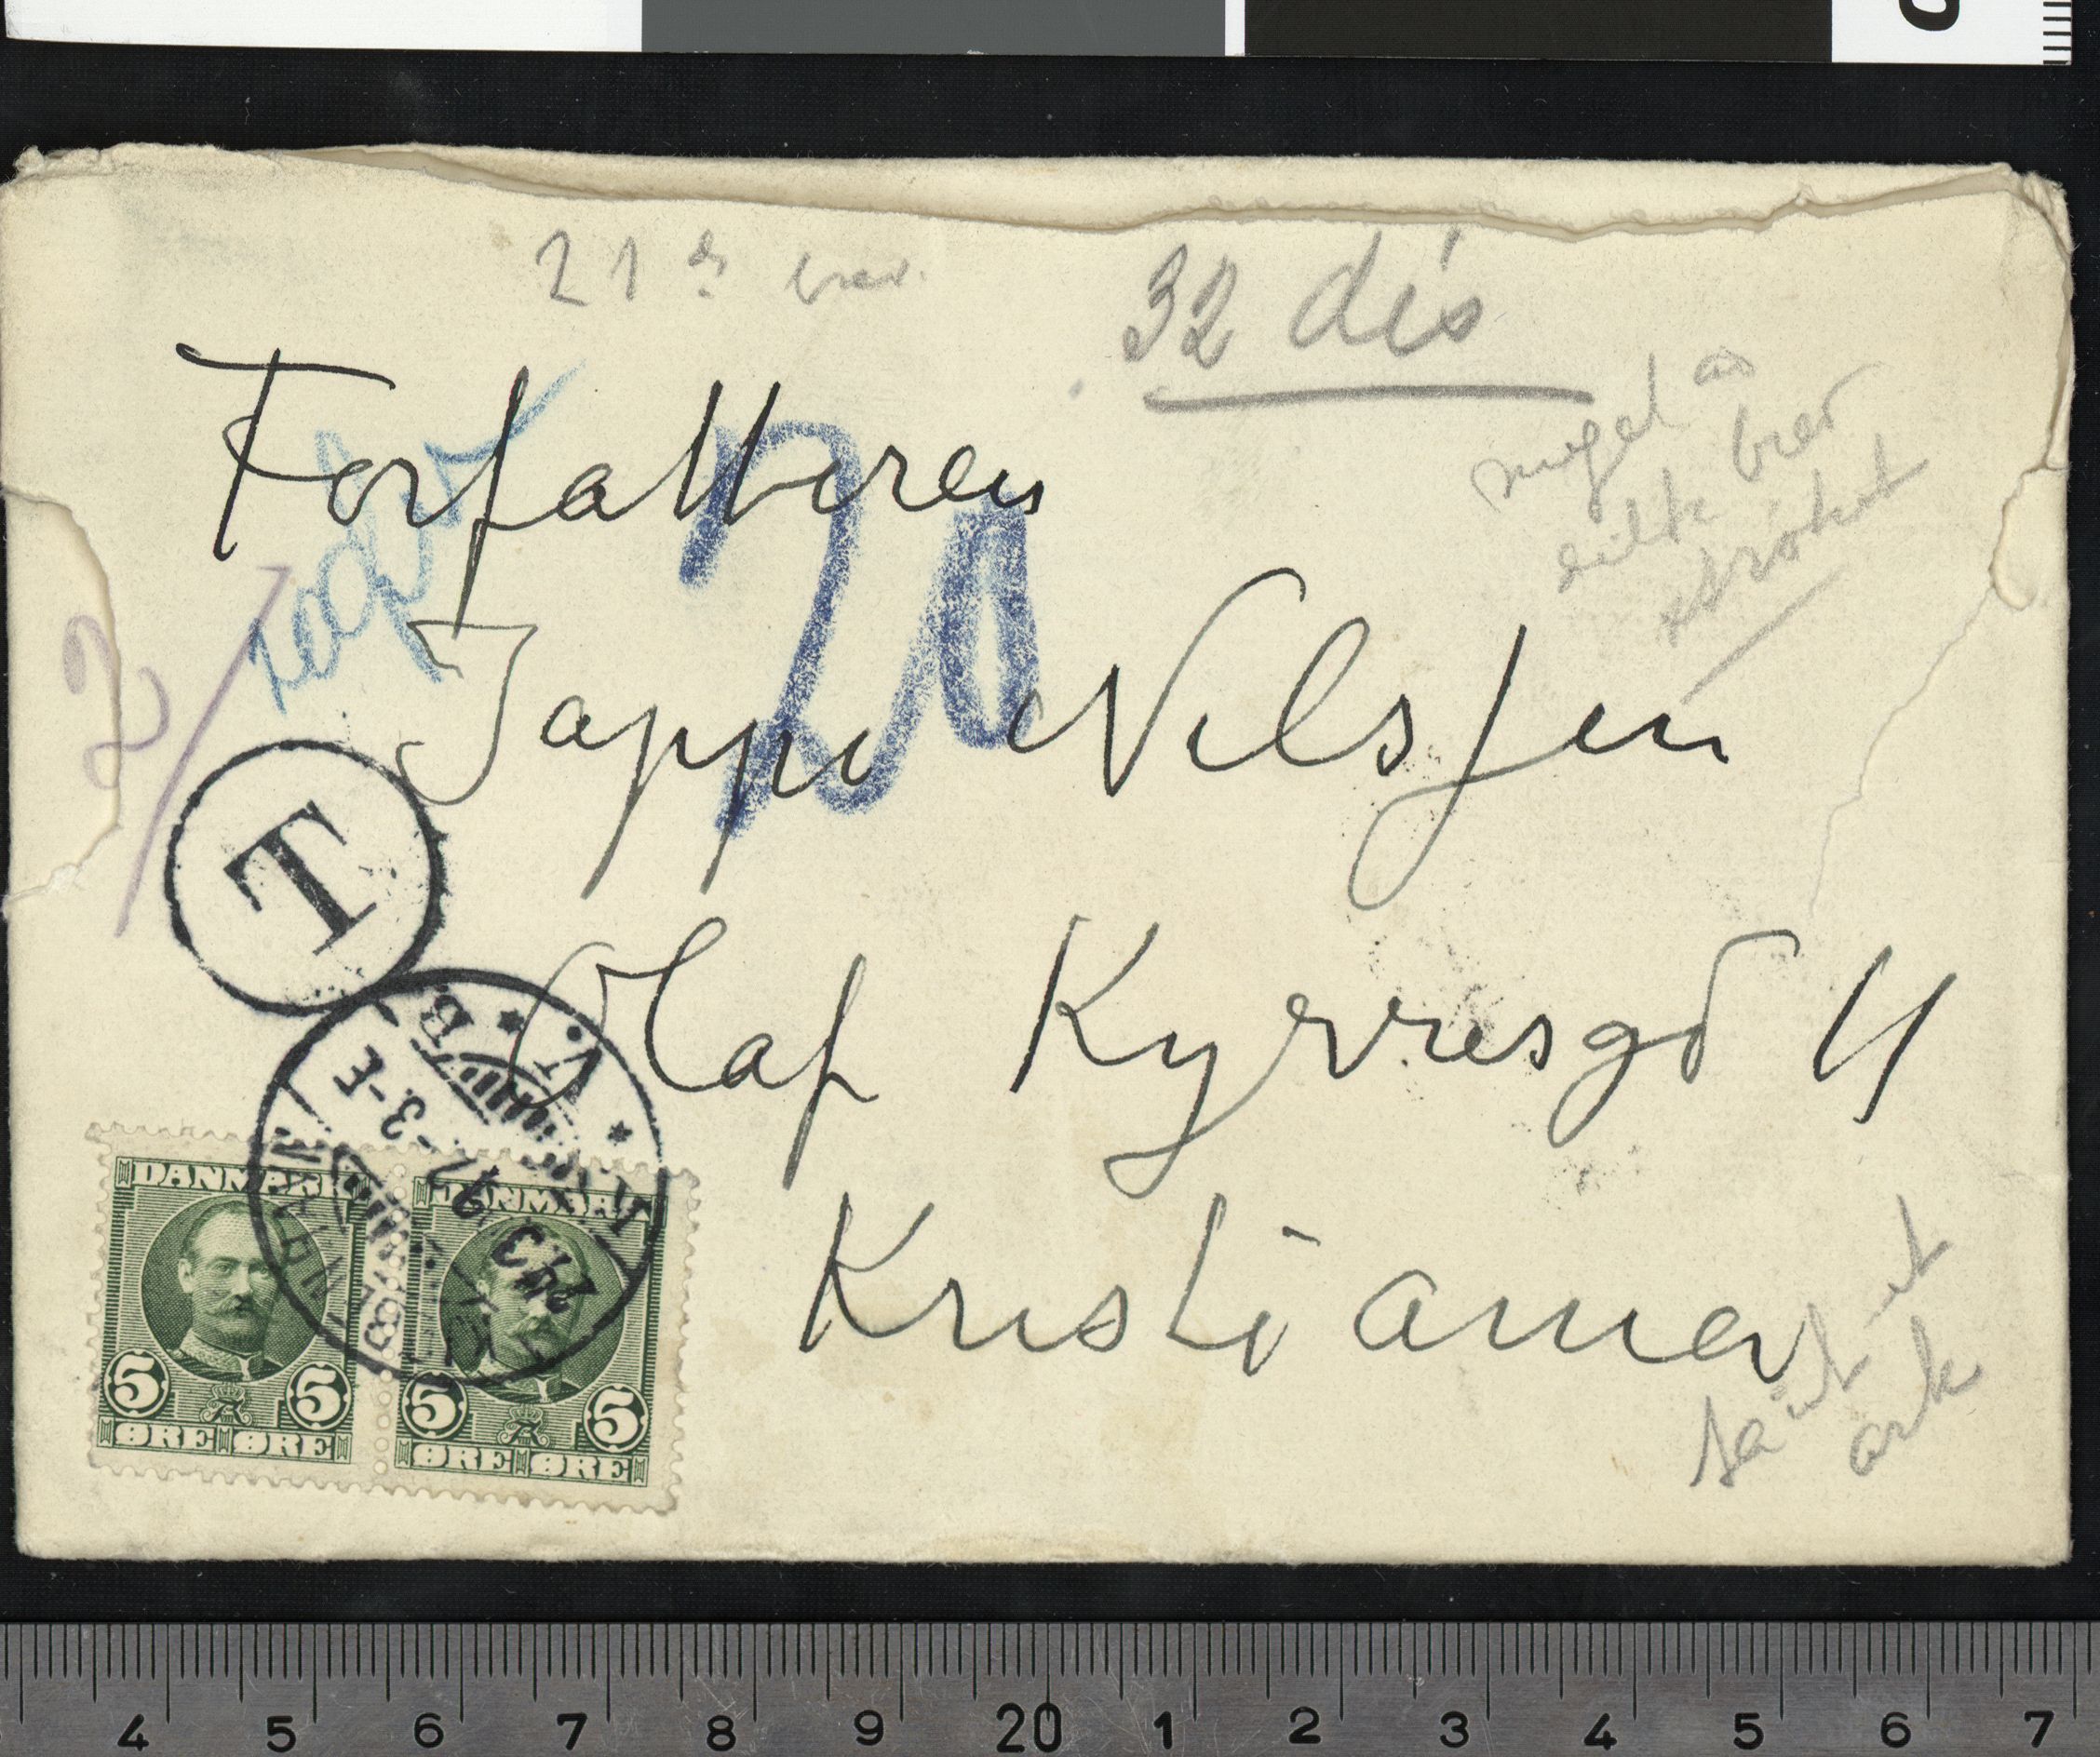 21 de brev.
32 dis
Forfatteren
Jappe Nilssen
Olaf Kyrresgd 11
Kristiania
20
2/
T
meget av
brev
strøket
et
ark
K. B.
24.3.09. 7-3-E
DANMARK
5 5
ØRE ØRE
DANMARK
5 5
ØRE ØRE
4 5 6 7 8 9 20 1 2 3 4 5 6 7